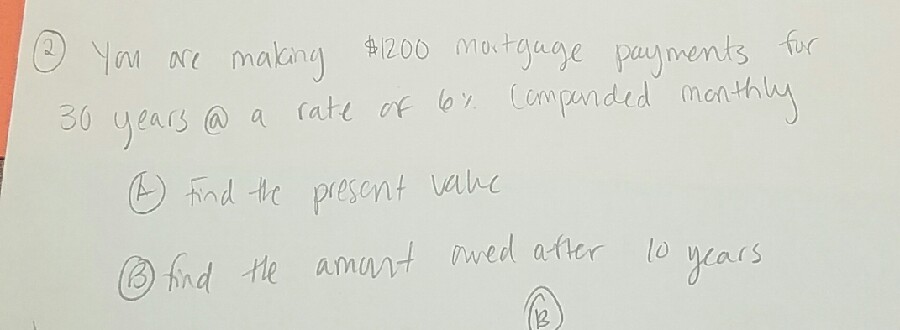 ② You are making $1200 mortgage payments for
30 years @ a rate of 6% Compunded monthly
Ⓐ Find the present value
Ⓑ find the amount owed after 10 years
Ⓑ